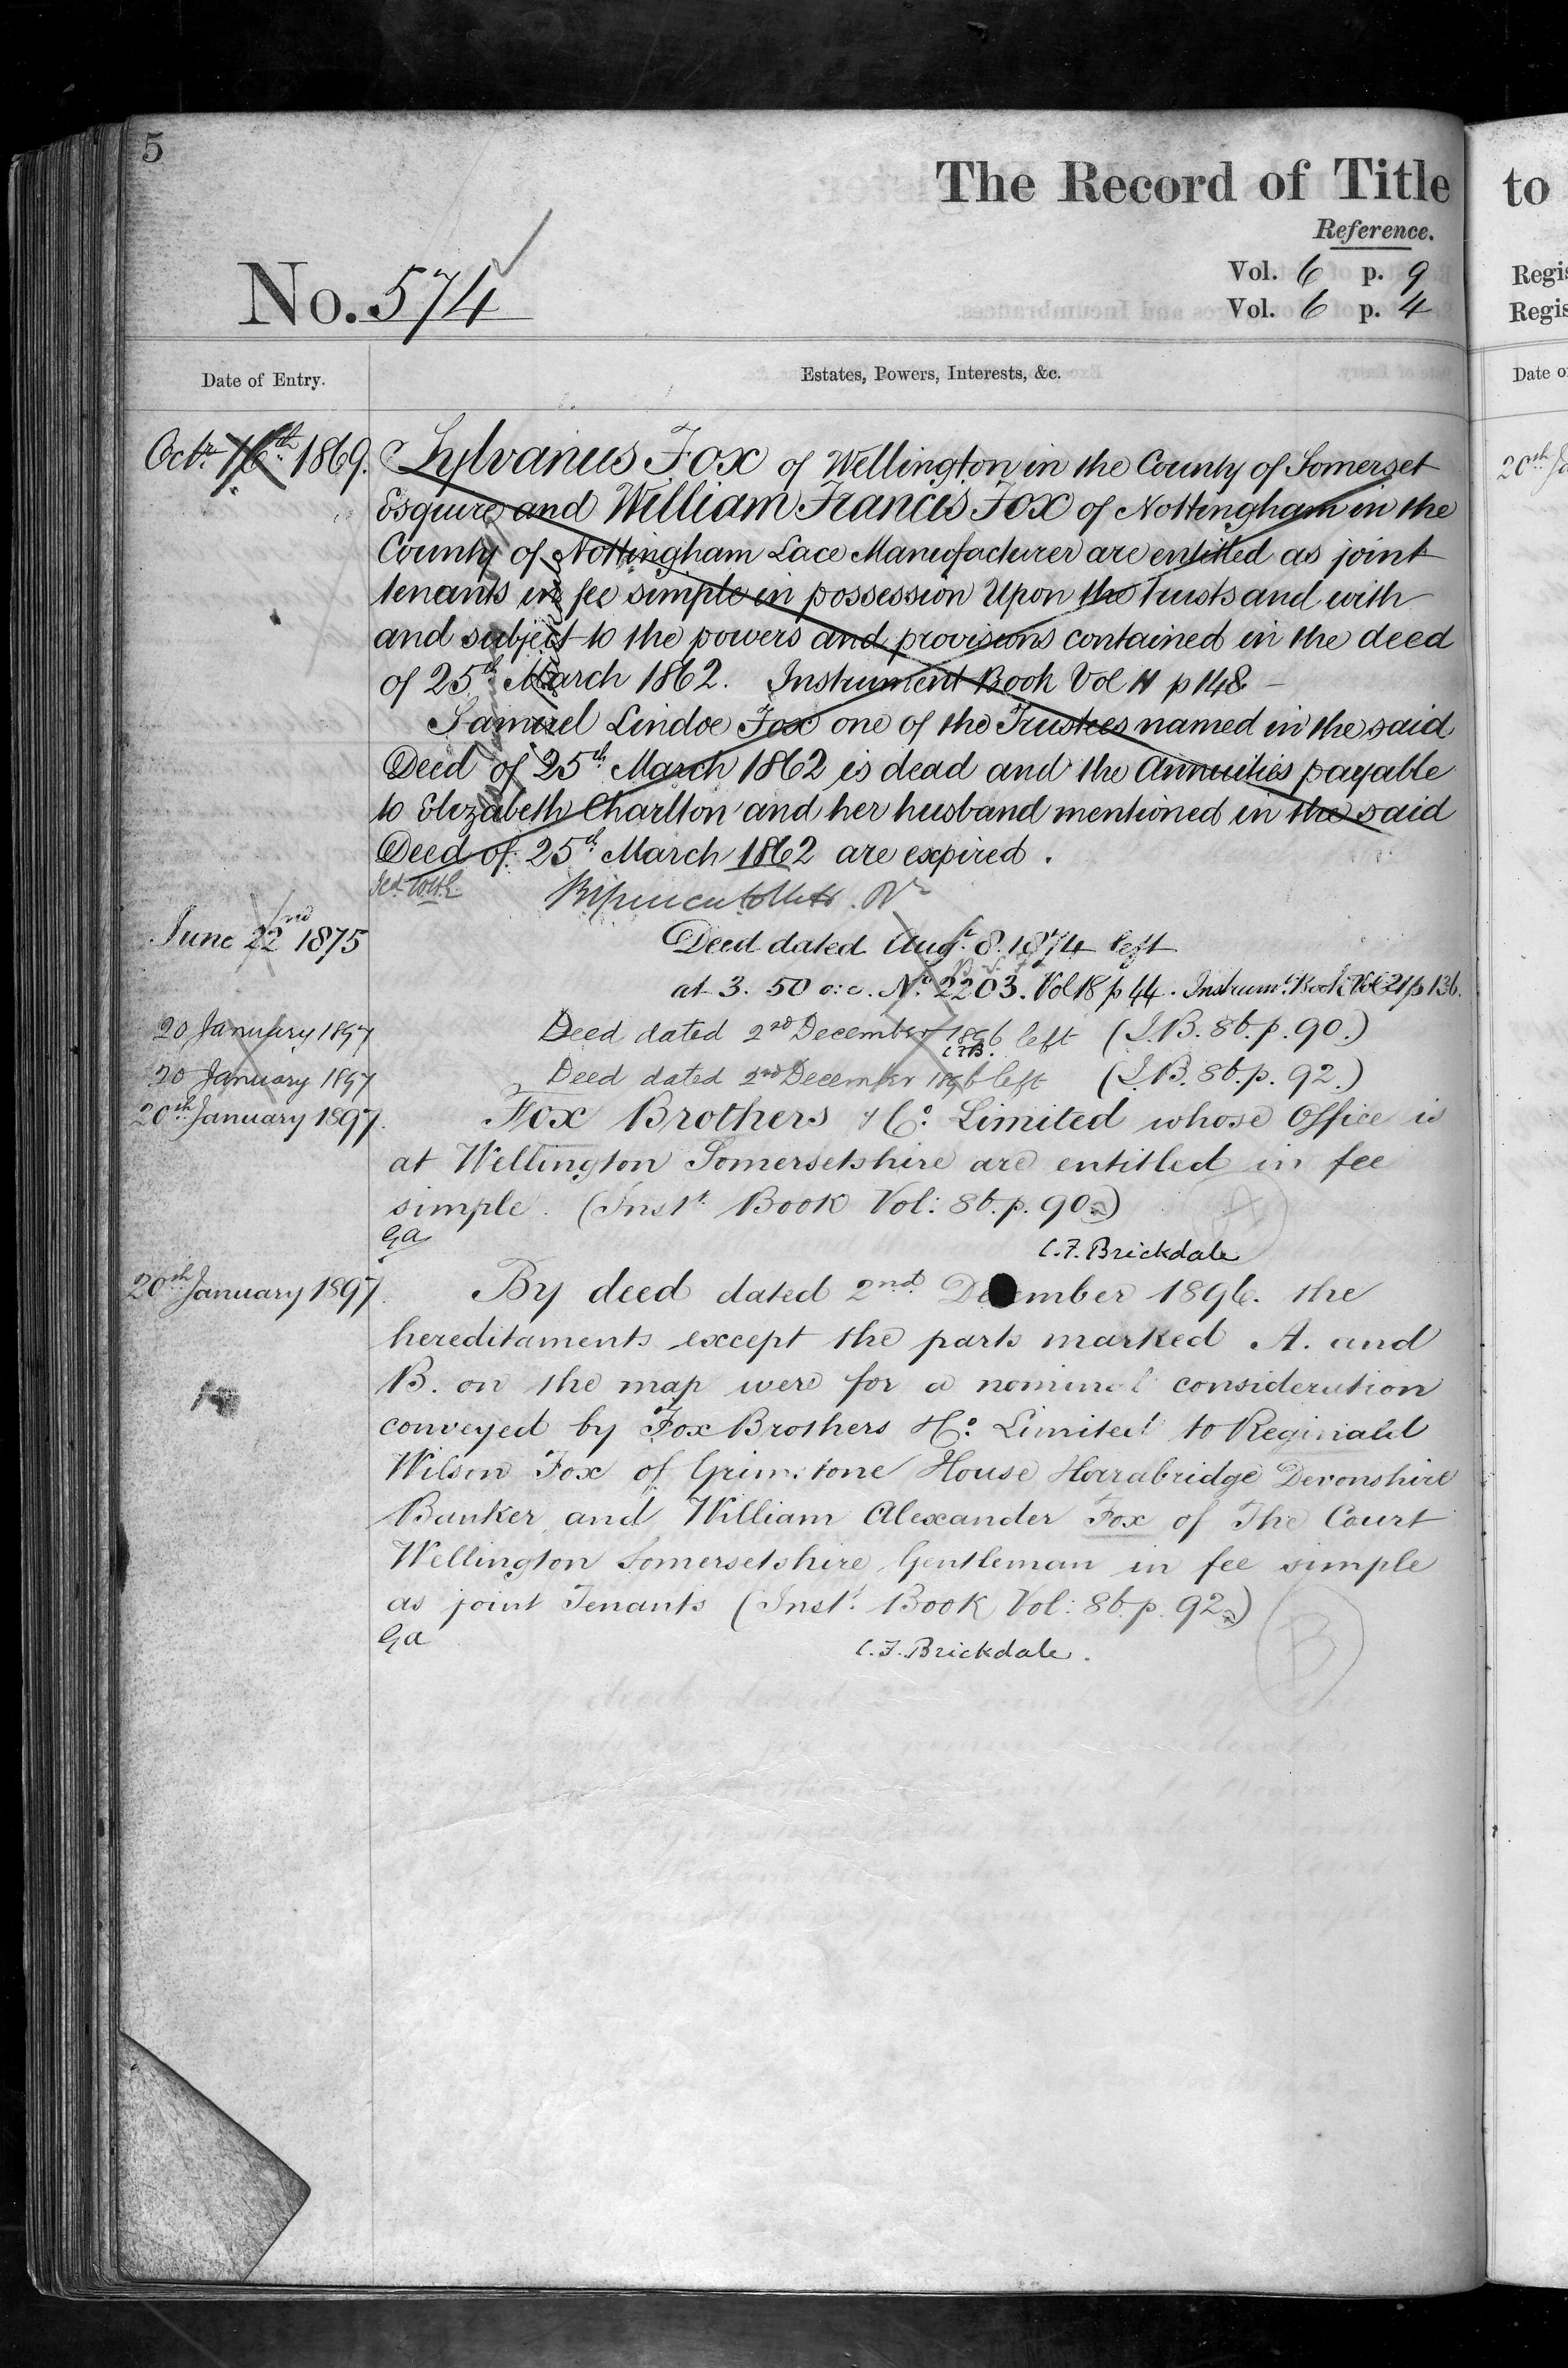 5
The Record of Title
to
Reference.
Vol. 6 p. 9
Vol. 6 p. 4
No. 574
Regis
Regis
Date of Entry.
Estates, Powers, Interests, &c.
Date o
Octr. 16th. 1869.
Sylvanus Fox of Wellington in the County of Somerset
Esquire and William Francis Fox of Nottingham in the
County of Nottingham Lace Manufacturer are entitled as joint
tenants in fee simple in possession Upon the Trusts and with
and subject to the powers and provisions contained in the deed
of 25th. March 1862. Instrument Book Vol 11 p 148 -
Samuel Lindoe Fox one of the Trustees named in the said
Deed of 25th. March 1862 is dead and the Annuities payable
to Elizabeth Charlton and her husband mentioned in the said
Deed of 25th. March 1862 are expired.
June 22nd 1875
Deed dated Augt. 8. 1874 left
at 3. 50 o:c. No. 2203. Vol 18 p 44. Instrumt. Book Vol 21 p 136.
20 January 1897
Deed dated 2nd December 1896 left (I.B. 86. p. 90.)
C.F.B.
20 January 1897
Deed dated 2nd December 1896 left (I.B. 86. p. 92.)
20th January 1897.
Fox Brothers & Co. Limited whose Office is
at Wellington Somersetshire are entitled in fee
simple. (Inst. Book Vol: 86. p. 90.)
A
Ga
C.F. Brickdale
20th January 1897.
By deed dated 2nd. December 1896. the
hereditaments except the parts marked A. and
B. on the map were for a nominal consideration
conveyed by Fox Brothers & Co. Limited to Reginald
Wilson Fox of Grimstone House Horrabridge Devonshire
Banker and William Alexander Fox of The Court
Wellington Somersetshire Gentleman in fee simple
as joint Tenants (Inst. Book Vol: 86. p. 92.)
Ga
B
C.F. Brickdale.